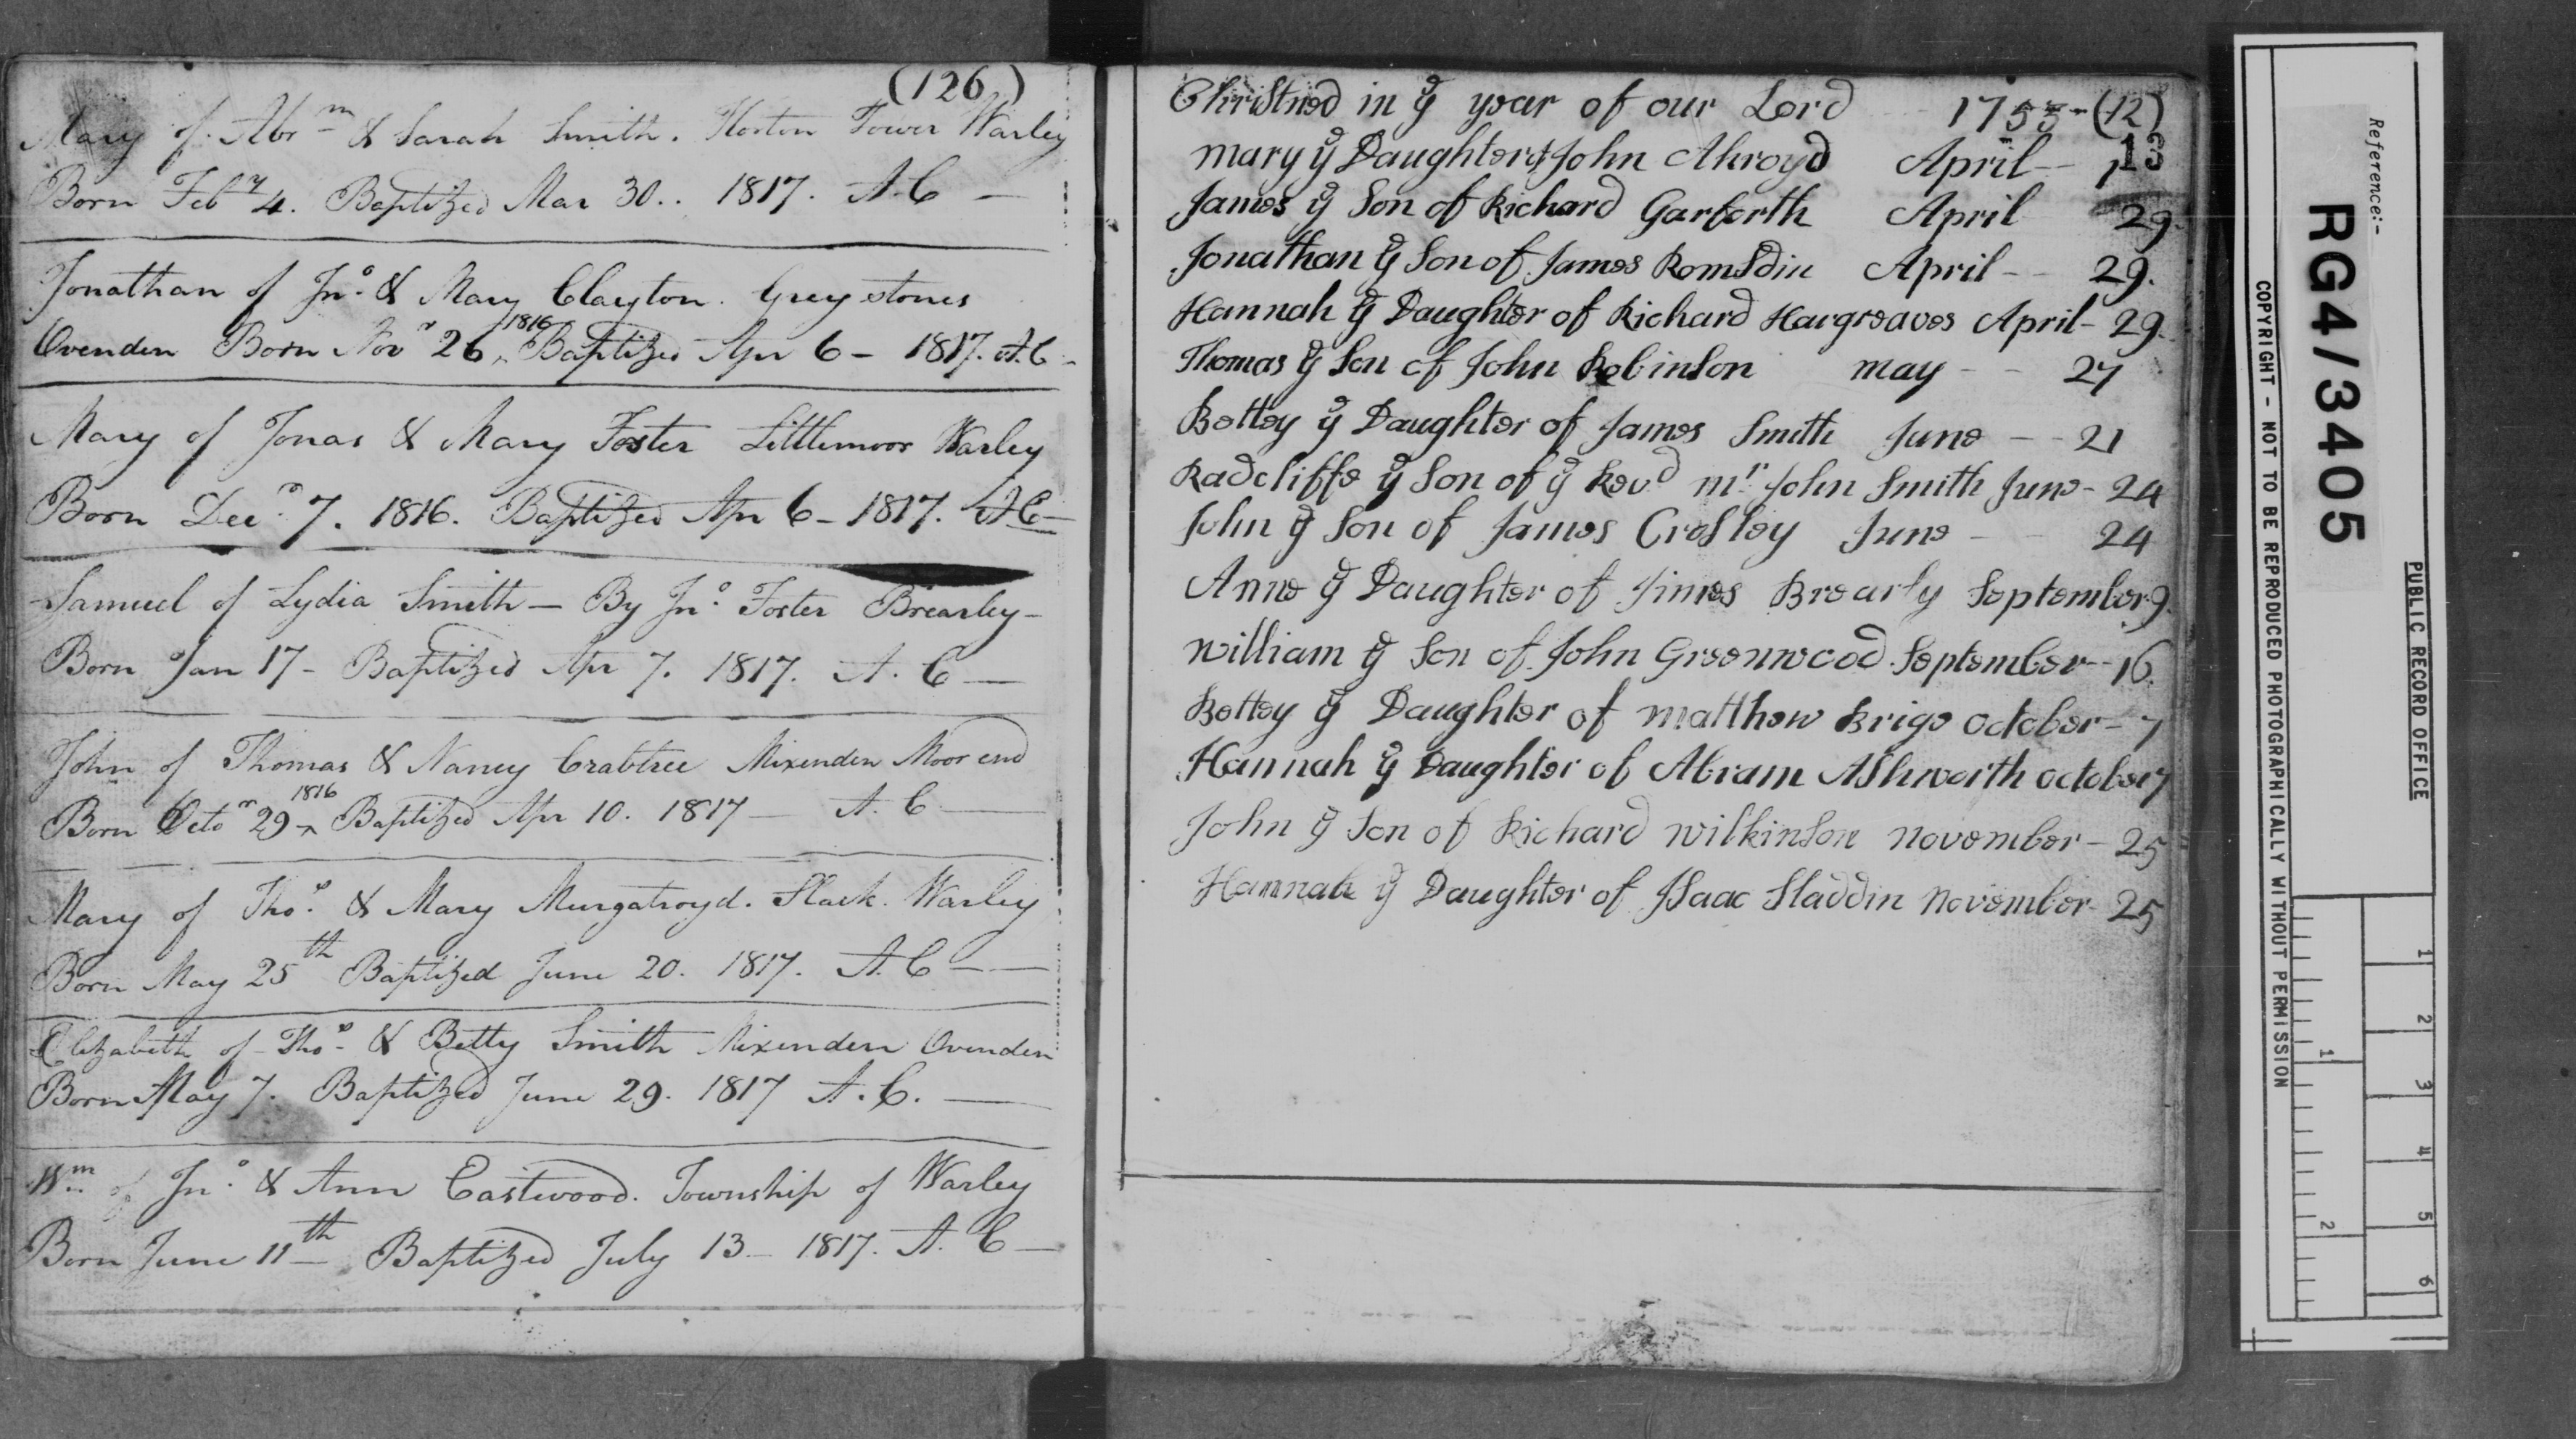 (126)
Mary of Abrm & Sarah Smith. Horton Tower Warley
Born Feby 4. Baptized Mar 30.. 1817. A.C —
Jonathan of Jno. & Mary Clayton. Grey stones
Ovenden Born Novr 26, 1816 Baptized Apr 6 – 1817. A.C –
Mary of Jonas & Mary Foster Littlemoor Warley
Born Decr. 7. 1816. Baptized Apr 6 – 1817. A.C –
Samuel of Lydia Smith – By Jno. Foster Brearley –
Born Jan 17 – Baptized Apr 7. 1817. A. C —
John of Thomas & Nancy Crabtree Mixenden Moor end
Born Octor 29 ^ 1816 Baptized Apr 10. 1817 — A. C —
Mary of Thos. & Mary Murgatroyd. Slack. Warley
Born May 25th Baptized June 20. 1817. A. C — —
Elizabeth of Thos. & Betty Smith Mixenden Ovenden
Born May 7. Baptized June 29. 1817 A. C. —
Wm of Jno. & Ann Eastwood. Township of Warley
Born June 11th Baptized July 13 – 1817. A. C —
Christned in ye year of our Lord 1753 – (12)
13
mary ye Daughter of John Akroyd April – 1
James ye Son of Richard Garforth April 29.
Jonathan ye Son of James Romsdin April – – 29.
Hannah ye Daughter of Richard Hargreaves April – 29.
Thomas ye Son of John Robinson may – – 27
Bettey ye Daughter of James Smith June – – 21
Radcliffe ye Son of ye Revd mr. John Smith June – 24
John ye Son of James Crosley June – – 24
Anne ye Daughter of Jimes Brearly September 9.
william ye Son of John Greenwood. September – – 16.
Bettey ye Daughter of matthew Brigs october – 7
Hannah ye Daughter of Abram Ashworth october 7
John ye Son of Richard wilkinson november – 25
Hannah ye Daughter of Isaac Sladdin november – 25
Reference:-
RG4/3405
PUBLIC RECORD OFFICE
COPYRIGHT – NOT TO BE REPRODUCED PHOTOGRAPHICALLY WITHOUT PERMISSION
1 2 3 4 5 6
1 2